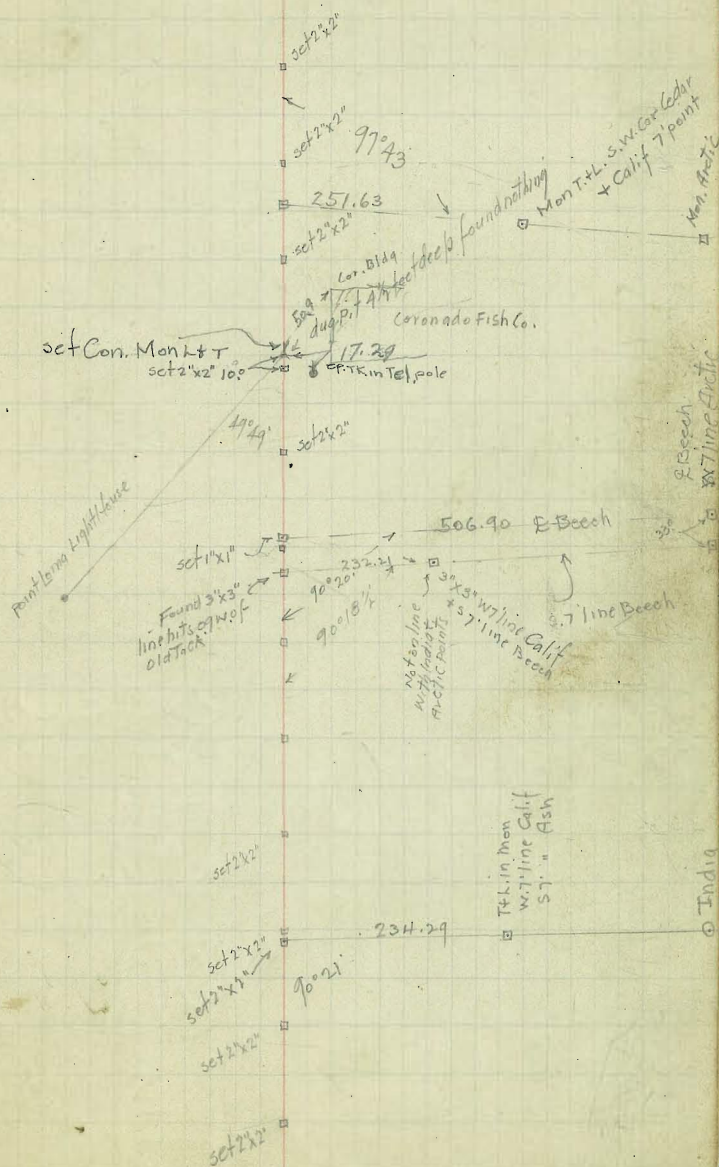 set 2"x2"
set 2"x2"
97°43'
251.63
Mon T.+L. S.W. Cor Cedar
+ Calif 7' point
Mon. Arctic
set 2"x2"
Cor. Bldg
dug pit 4 1/2 feet deep found nothing
Coronado Fish Co.
set Con. Mon L+T
17.29
set 2"x2" 10.0
cp. TK. in Tel. pole
49°49'
set 2"x2"
Point Loma Light House
₵ Beech
W 7' line Arctic
506.90 ₵ Beech
set 1"x1"
232.21
90°20'
90°18'½
Found 3"x3"
line hits .09 W. of
old Tack.
3"x3" W 7' line Calif
+ S 7' line Beech
7' line Beech
Not on line
with India +
Arctic Points
T+L. in Mon
W. 7' line Calif
S 7' " Ash
set 2"x2"
India
234.29
set 2"x2"
set 2"x2"
90°21'
set 2"x2"
set 2"x2"